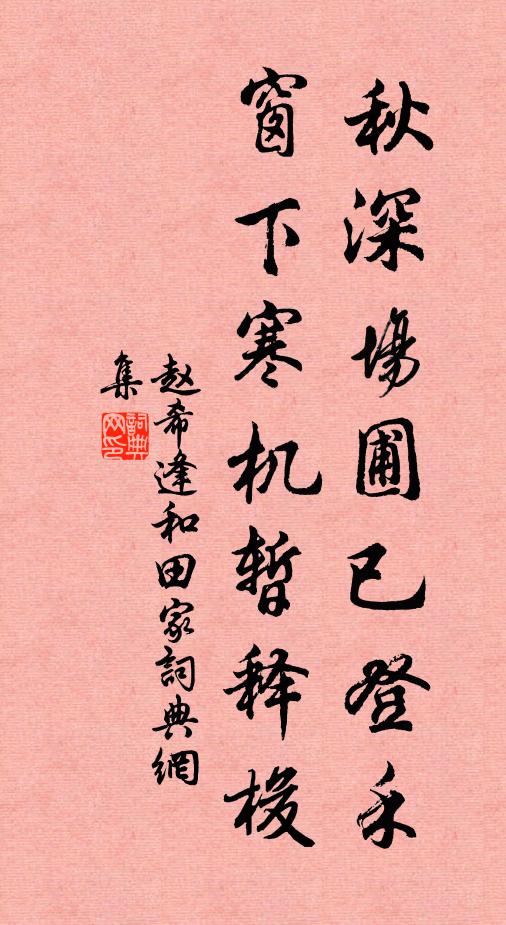 秋深場圃已登禾
窗下寒机暂释梭
赵希逢和田家詞典網
集
詞典
网印